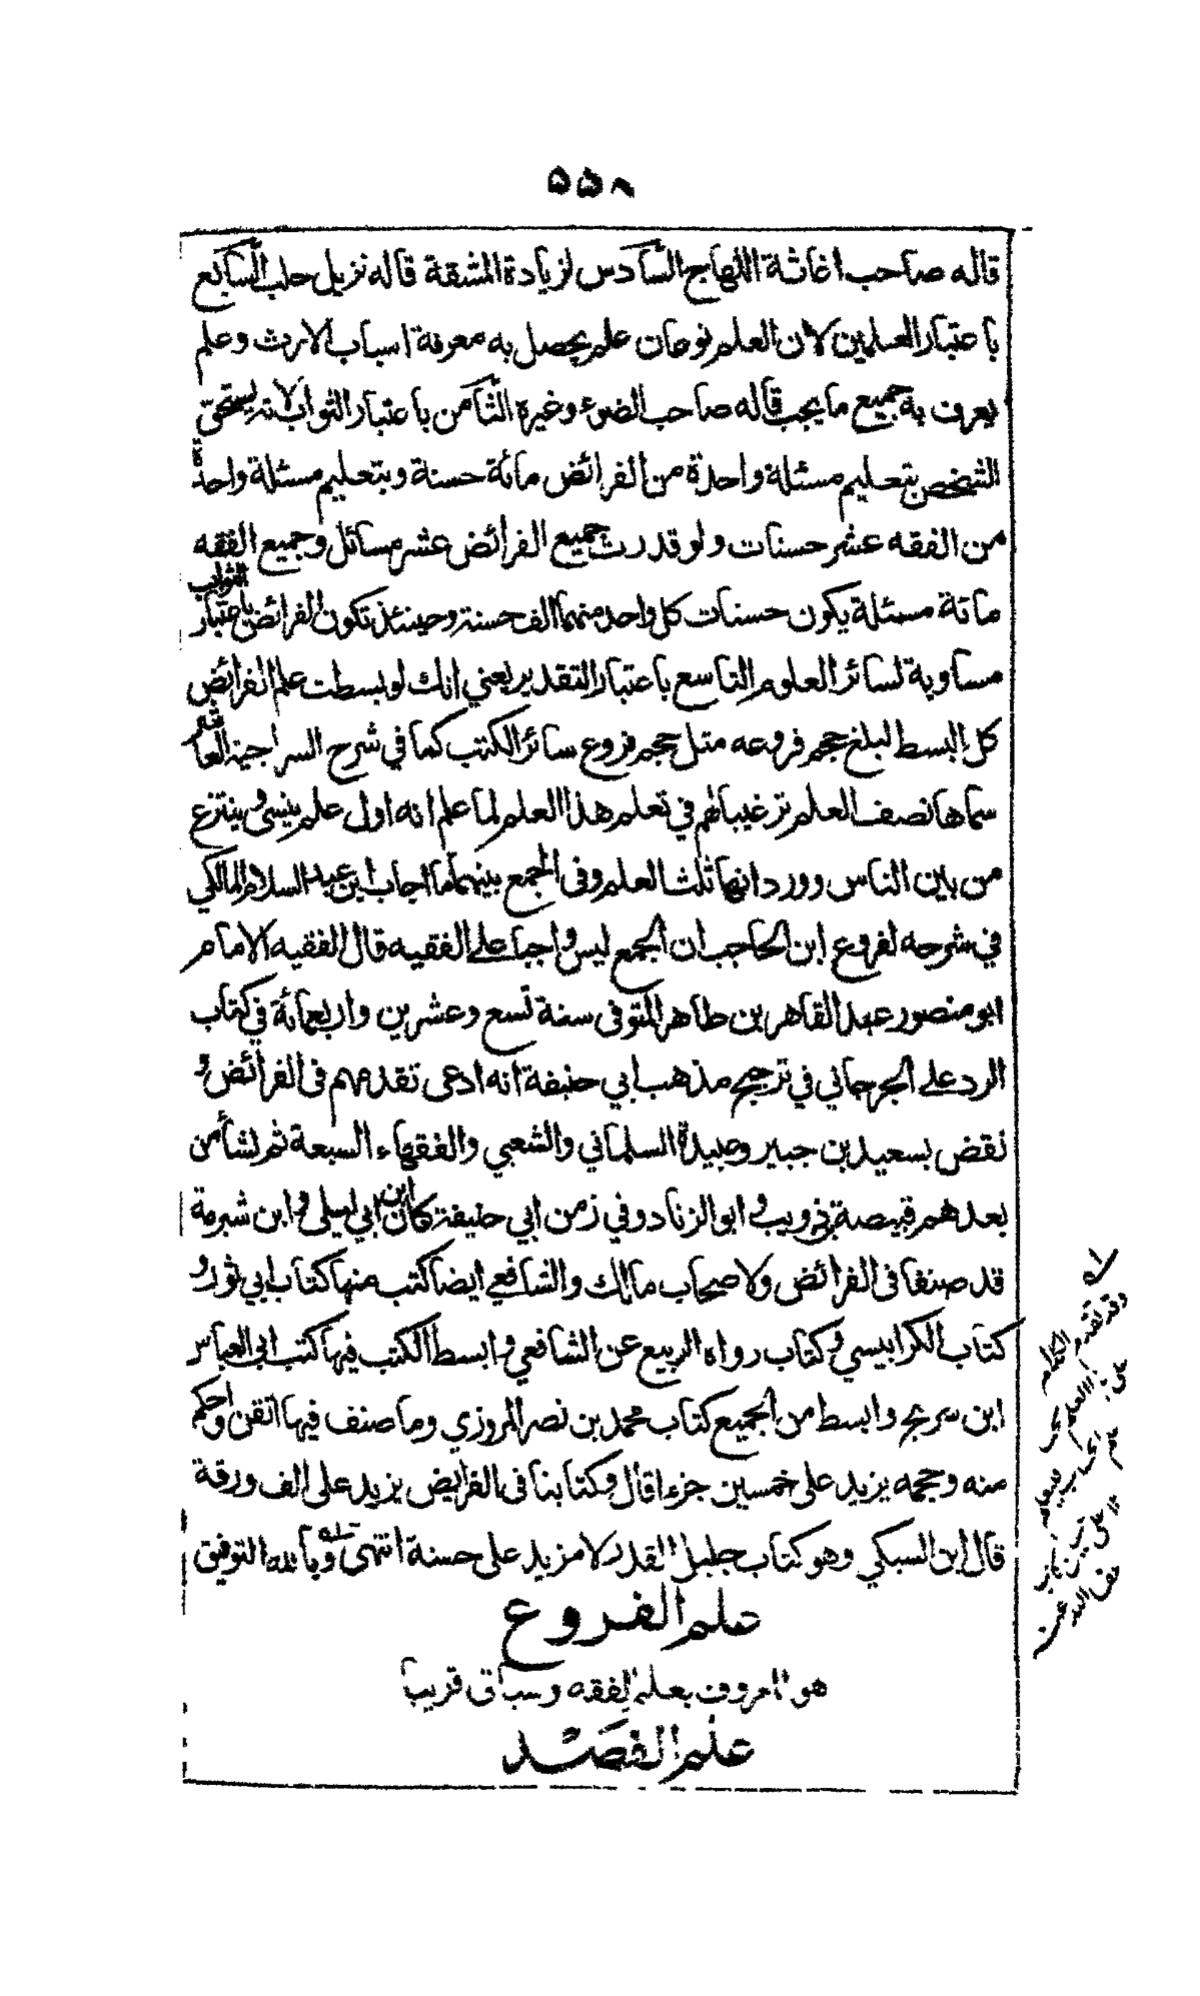 ۵۵۸
قاله صاحب اغاثة اللهاج السادس لزيادة المشقة قاله نزيل حلب السابع
باعتبار العلمين لان العلم نوعان علم يحصل به معرفة اسباب الارث وعلم
يعرف به جميع ما يجب قاله صاحب الضوء وغيره الثامن باعتبار الثواب لانه يستحق
الشخص بتعليم مسئلة واحدة من الفرائض مائة حسنة وبتعليم مسئلة واحدة
من الفقه عشر حسنات ولو قدرت جميع الفرائض عشر مسائل وجميع الفقه
مائة مسئلة يكون حسنات كل واحد منهما الف حسنة وحينئذ تكون الفرائض باعتبار الثواب
مساوية لسائر العلوم التاسع باعتبار التقدير يعني انك لو بسطت علم الفرائض
كل البسط لبلغ حجم فروعه مثل حجم فروع سائر الكتب كما في شرح السراجية العاشر
سماها نصف العلم ترغيبا لهم في تعلم هذا العلم لما علم انه اول علم ينسى وينتزع
من بين الناس وورد انها ثلث العلم وفى الجمع بينهما اجاب ابن عبد السلام المالكي
في شرحه لفروع ابن الحاجب ان الجمع ليس واجبا على الفقيه قال الفقيه الامام
ابو منصور عبد القاهر بن طاهر المتوفى سنة تسع وعشرين واربعمائة في كتاب
الرد على الجرجاني في ترجيح مذهب ابي حنيفة انه ادعى تقدمهم فى الفرائض و
نقض بسعيد بن جبير وعبيدة السلماني والشعبي والفقهاء السبعة ثم نشأ من
بعدهم قبيصة بن ذويب وابو الزناد وفي زمن ابي حنيفة كان ابن ابي ليلى وابن شبرمة
قد صنفا فى الفرائض ولاصحاب مالك والشافعي ايضا كتب منها كتاب ابي ثور و
كتاب الكرابيسي وكتاب رواه الربيع عن الشافعي وابسط الكتب فيها كتب ابى العباس
ابن سريج وابسط من الجميع كتاب محمد بن نصر المروزي وما صنف فيها اتقن واحكم
منه وحجمه يزيد على خمسين جزءا قال وكتابنا فى الفرايض يزيد على الف ورقة
قال ابن السبكي وهو كتاب جليل القدر لا مزيد على حسنة انتهى وبالله التوفيق
علم الفروع
هو المعروف بعلم الفقه وسيأتي قريبا
علم الفصد